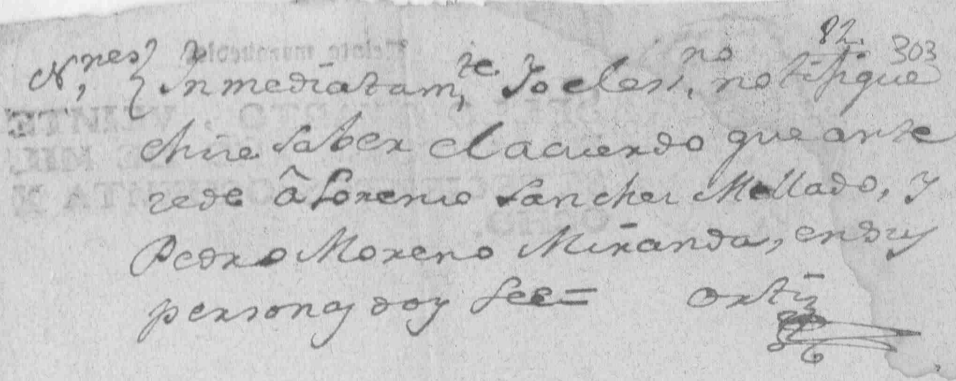 82.
303
N,nes Inmediatam,te Yo el ess,no notifique
e hice saber el acuerdo que ante
zede â Lorenzo Sanchez Mellado, y
Pedro Moreno Miranda, en sus
personas doy fee = Ortiz